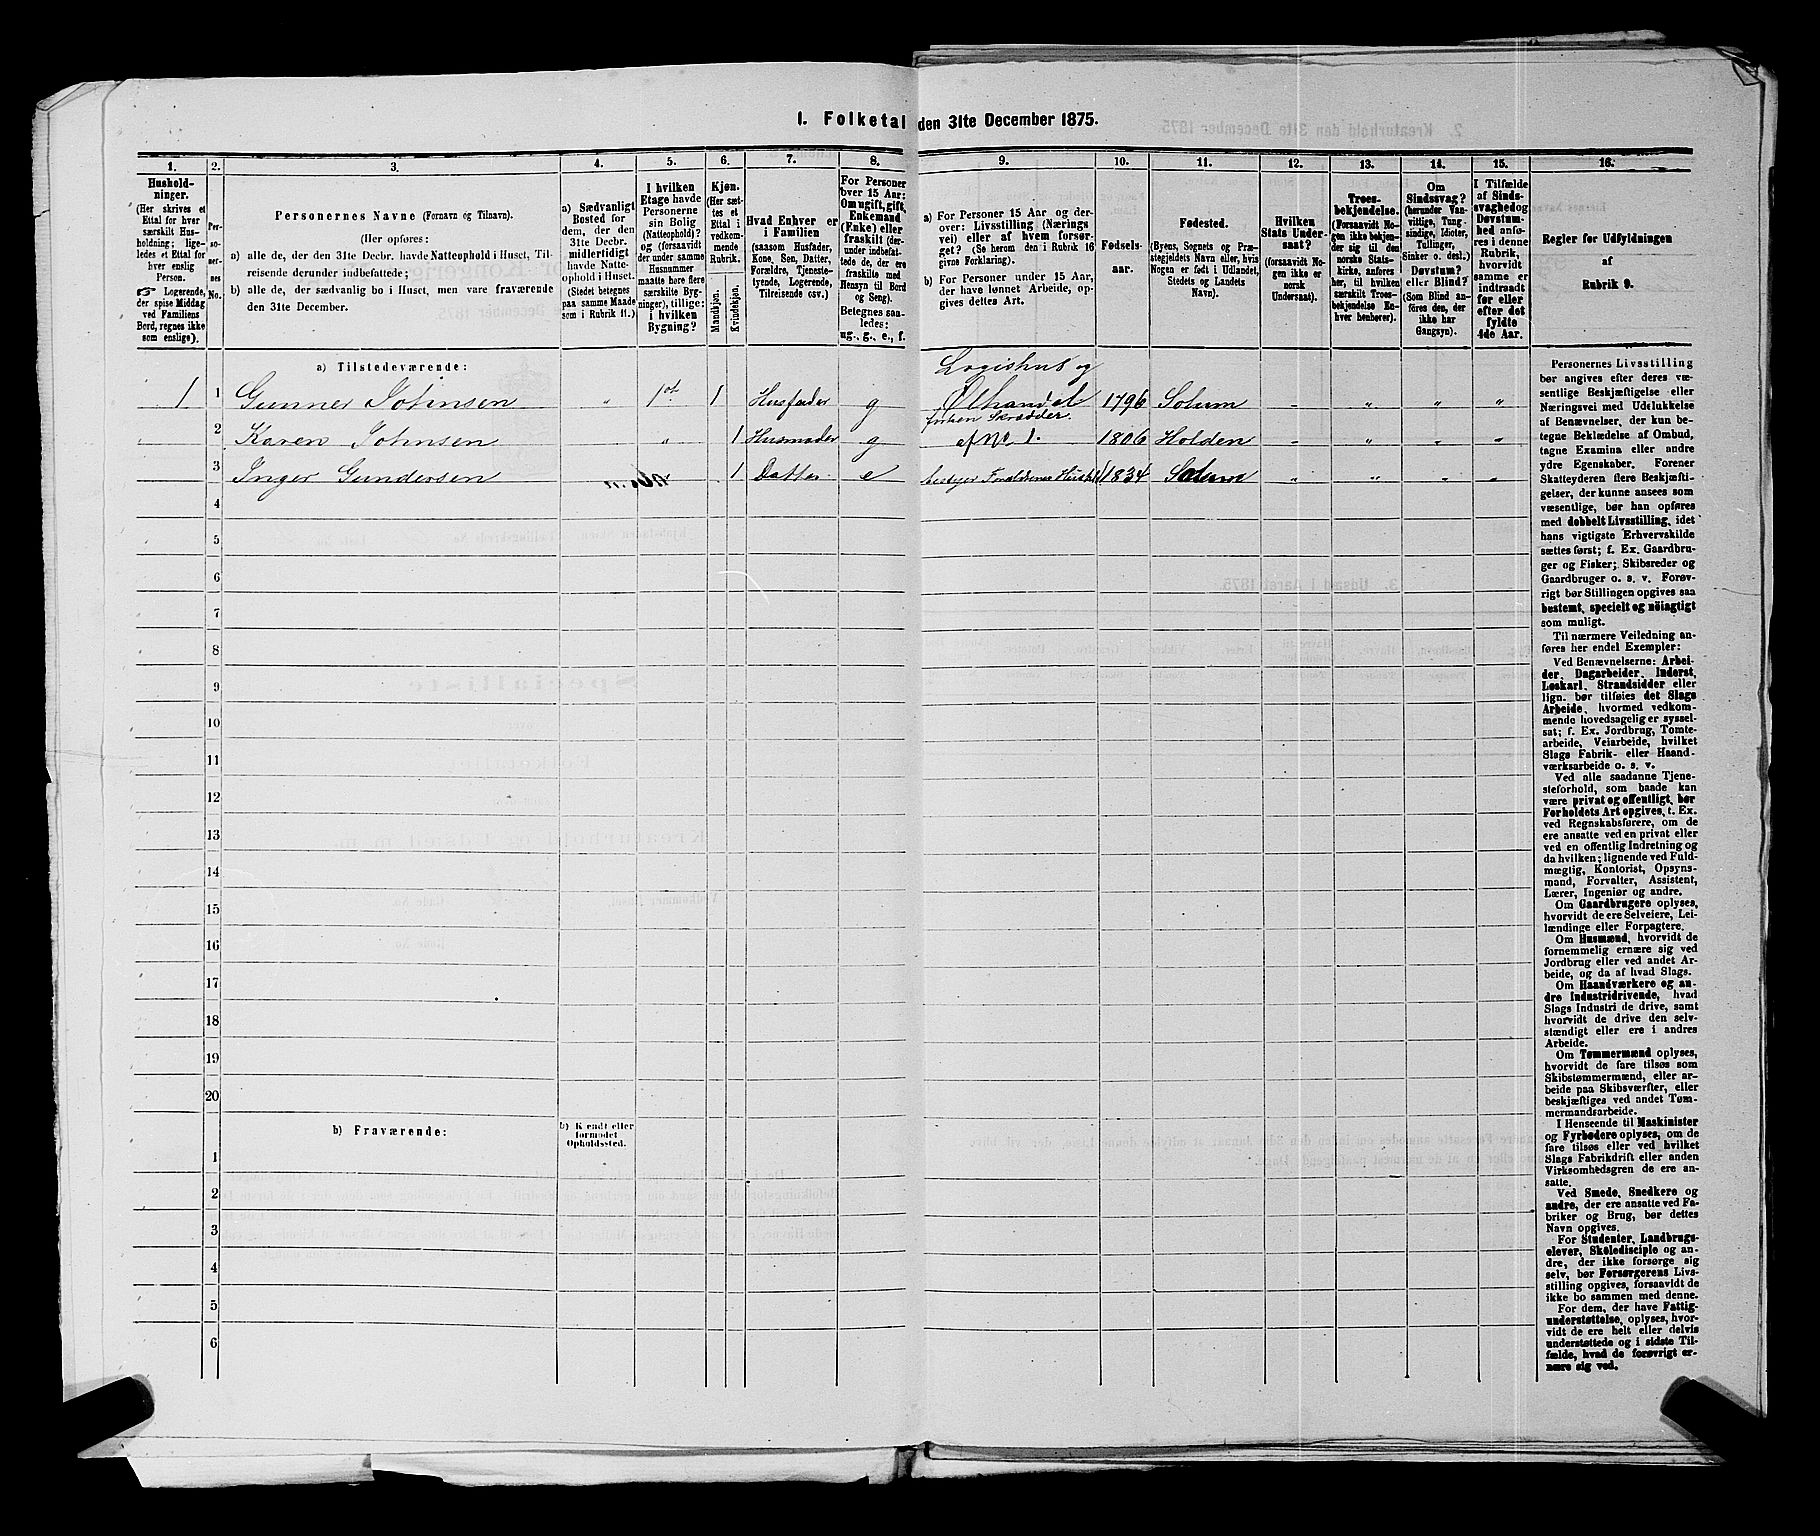 1. Folketal den 31te December 1875.
1.
Hushold-
ninger.
(Her skrives et
Ettal for hver
særskilt Hus-
holdning; lige-
ledes et Ettal for
hver enslig
Person.
Logerende,
der spise Middag
ved Familiens
Bord, regnes ikke
som enslige).
2.
Per-
so-
ner-
nes
No.
3.
Personernes Navne (Fornavn og Tilnavn).
(Her opføres:
a) alle de, der den 31te Decbr. havde Natteophold i Huset, Til-
reisende derunder indbefattede;
b) alle de, der sædvanlig bo i Huset, men vare fraværende
den 31te December.
4.
a) Sædvanligt
Bosted for
dem, der den
31te Decbr.
midlertidigt
havde Natte-
ophold i Huset.
(Stedet betegnes
paa samme Maade
som i Rubrik 11.)
5.
I hvilken
Etage havde
Personerne
sin Bolig
(Natteophold)?
og (forsaavidt
der under samme
Husnummer
maatte høre flere
særskilte Byg-
ninger), tillige:
i hvilken
Bygning?
6.
Kjøn.
(Her sæt-
tes et
Ettal i
vedkom-
mende
Rubrik.
Mandkjøn.
Kvindekjøn.
7.
Hvad Enhver er
i Familien
(saasom Husfader,
Kone, Søn, Datter,
Forældre, Tjeneste-
tyende, Logerende,
Tilreisende osv.)
8.
For Personer
over 15 Aar:
Om ugift, gift,
Enkemand
(Enke) eller
fraskilt (der-
under indbefat-
tede de, der ere
fraskilte med
Hensyn til Bord
og Seng).
Betegnes saa-
ledes:
ug., g., e., f.
9.
a) For Personer 15 Aar og der-
over: Livsstilling (Nærings
vei) eller af hvem forsør-
get? (Se herom den i Rubrik 16
givne Forklaring).
b) For Personer under 15 Aar,
der have lønnet Arbeide, op-
gives dettes Art.
10.
Fødsels-
aar.
11.
Fødested.
(Byens, Sognets og Præ-
stegjeldets Navn eller, hvis
Nogen er født i Udlandet,
Stedets og Landets
Navn).
12.
Hvilken
Stats Under-
saat?
(forsaavidt No-
gen ikke er
norsk
Undersaat).
13.
Troes-
bekjendelse.
(Forsaavidt No-
gen ikke bekjen-
der sig til den
norske Stats-
kirke, anføres
her, til hvilken
særskilt Troes-
bekjendelse En-
hver henhører).
14.
Om
Sindssvag?
(herunder Van-
vittige, Tung-
sindige, Idioter,
Tullinger,
Sinker o. desl.)
Døvstum?
eller Blind?
(Som Blind an-
føres den, der
ikke har
Gangsyn).
15.
I Tilfælde
af Sinds-
svaghed og
Døvstum-
hed anfø-
res i denne
Rubrik,
hvorvidt
samme er
indtraadt
før eller
efter det
fyldte
4de Aar.
16.
Regler for Udfyldningen
af
Rubrik 9.
a) Tilstedeværende:
Logishus og
1 1 Gunner Johnsen " 1st 1 Husfader g Ølhandel 1796 Solum " " " "
forhen Skrædder.
2 Karen Johnsen " 1 Husmoder g af No 1. 1806 Holden " " " "
3 Inger Gundersen 1 Datter e 1834 Solum " " " "
4
5
6
7
8
9
10
11
12
13
14
15
16
17
18
19
20
b) Fraværende:
b) Kjendt eller
formodet
Opholdssted.
1
2
3
4
5
6
Personernes Livsstilling
bør angives efter deres væ-
sentlige Beskjæftigelse eller
Næringsvei med Udelukkelse
af Benævnelser, der kun be-
tegne Beklædelse af Ombud,
tagne Examina eller andre
ydre Egenskaber. Forener
Skatteyderen flere Beskjæfti-
gelser, der kunne ansees som
væsentlige, bør han opføres
med dobbelt Livsstilling, idet
hans vigtigste Erhvervskilde
sættes først; f. Ex. Gaardbru-
ger og Fisker; Skibsreder og
Gaardbruger o. s. v. Forøv-
rigt bør Stillingen opgives saa
bestemt, specielt og nöiagtigt
som muligt.
Til nærmere Veiledning an-
føres her endel Exempler:
Ved Benævnelserne: Arbei-
der, Dagarbeider, Inderst,
Løskarl, Strandsidder eller
lign. bør tilføies det Slags
Arbeide, hvormed vedkom-
mende hovedsagelig er syssel-
sat; f. Ex. Jordbrug, Tomte-
arbeide, Veiarbeide, hvilket
Slags Fabrik- eller Haand-
værksarbeide o. s. v.
Ved alle saadanne Tjene-
steforhold, som baade kan
være privat og offentligt, bør
Forholdets Art opgives, t. Ex.
ved Regnskabsførere, om de
ere ansatte ved en privat eller
ved en offentlig Indretning og
da hvilken; lignende ved Fuld-
mægtig, Kontorist, Opsyns-
mand, Forvalter, Assistent,
Lærer, Ingeniør og andre.
Om Gaardbrugere oplyses,
hvorvidt de ere Selveiere, Lei-
lændinge eller Forpagtere.
Om Husmænd, hvorvidt de
fornemmelig ernære sig ved
Jordbrug eller ved andet Ar-
beide, og da af hvad Slags.
Om Haandværkere og an-
dre Industridrivende, hvad
Slags Industri de drive, samt
hvorvidt de drive den selv-
stændigt eller ere i andres
Arbeide.
Om Tømmermænd oplyses,
hvorvidt de fare tilsøs som
Skibstømmermænd, eller ar-
beide paa Skibsværfter, eller
beskjæftiges ved andet Tøm-
mermandsarbeide.
I Henseende til Maskinister
og Fyrbødere oplyses, om de
fare tilsøs eller ved hvilket
Slags Fabrikdrift eller anden
Virksomhedsgren de ere an-
satte.
Ved Smede, Snedkere og
andre, der ere ansatte ved Fa-
briker og Brug, bør dettes
Navn opgives.
For Studenter, Landbrugs-
elever, Skoledisciple og an-
dre, der ikke forsørge sig
selv, bør Forsørgerens Livs-
stilling opgives, forsaavidt de
ikke bo sammen med denne.
For dem, der have Fattig-
understøttelse, oplyses, hvor-
vidt de ere helt eller delvis
understøttede og i sidste Til-
fælde, hvad de forøvrigt er-
nære sig ved.